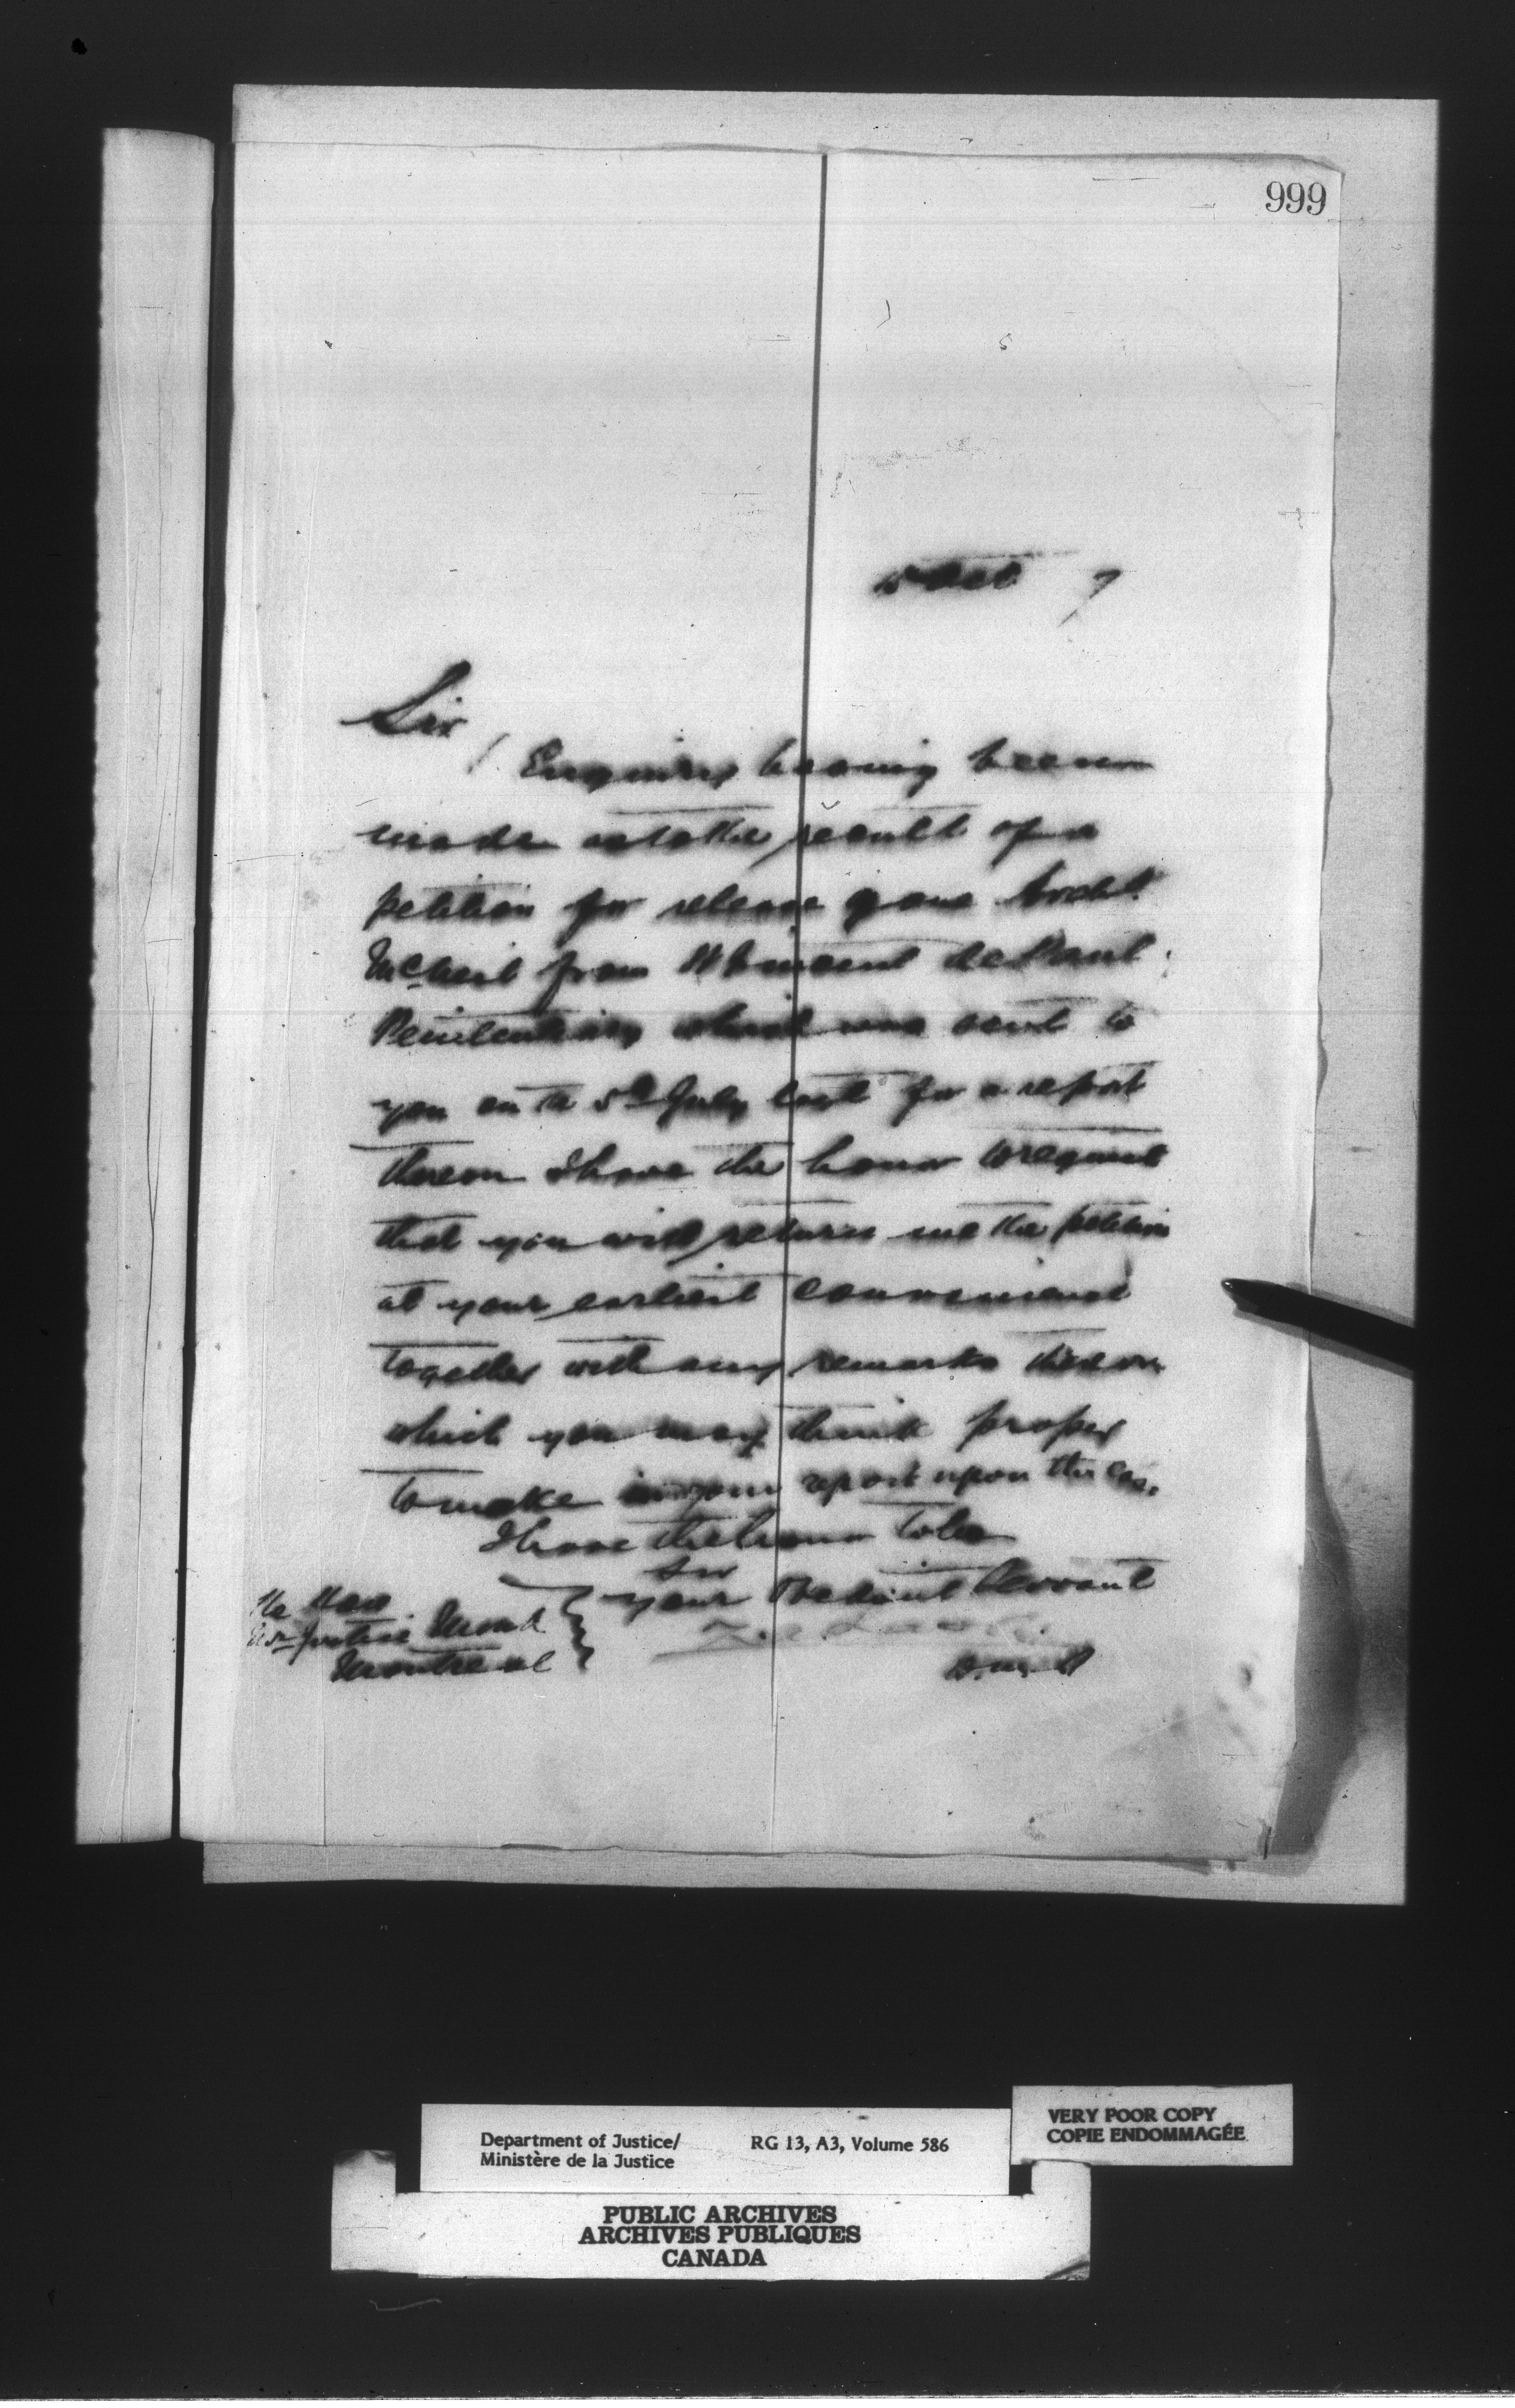 999
Oct 7
Sir,
Enquiry having been
made as to the result of a
petition for release of one Archd.
McNeil from St Vincent de Paul
Penitentiary which was sent to
you on the 5th July last for a report
thereon I have the honor to request
that you will return me the petition
at your earliest convenience
together with any remarks thereon
which you may think proper
to make in your report upon the case.
I have the honor to be
Sir
your Obedient Servant
The Hon
Mr Justice Monk
Montreal
VERY POOR COPY
COPIE ENDOMMAGÉE
Department of Justice/ RG 13, A3, Volume 586
Ministère de la Justice
PUBLIC ARCHIVES
ARCHIVES PUBLIQUES
CANADA